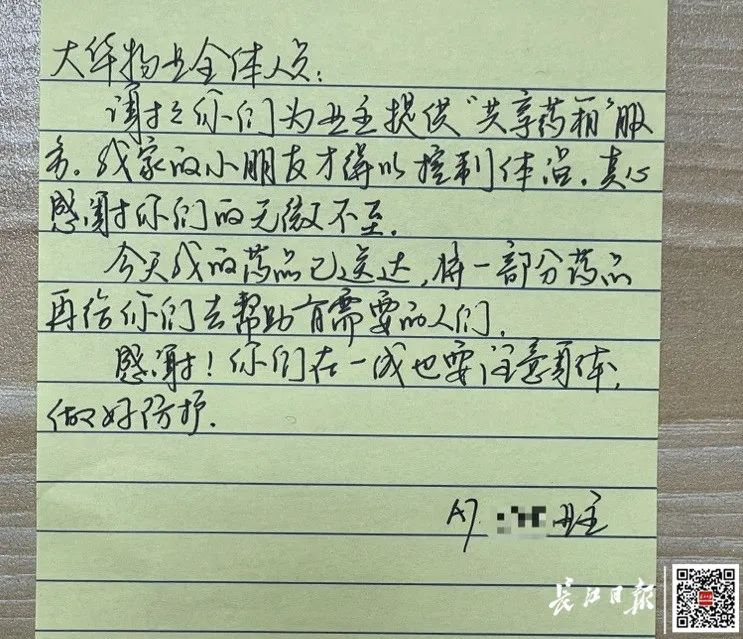 大华物业全体人员:
谢谢你们为业主提供“共享药箱”服
务。我家的小朋友才得以控制体温。真心
感谢你们的无微不至.
今天我的药品已送达,将一部分药品
再给你们去帮助有需要的人们.
感谢!你们在一线也要注意身体,
做好防护.
A7 业主
长江日报